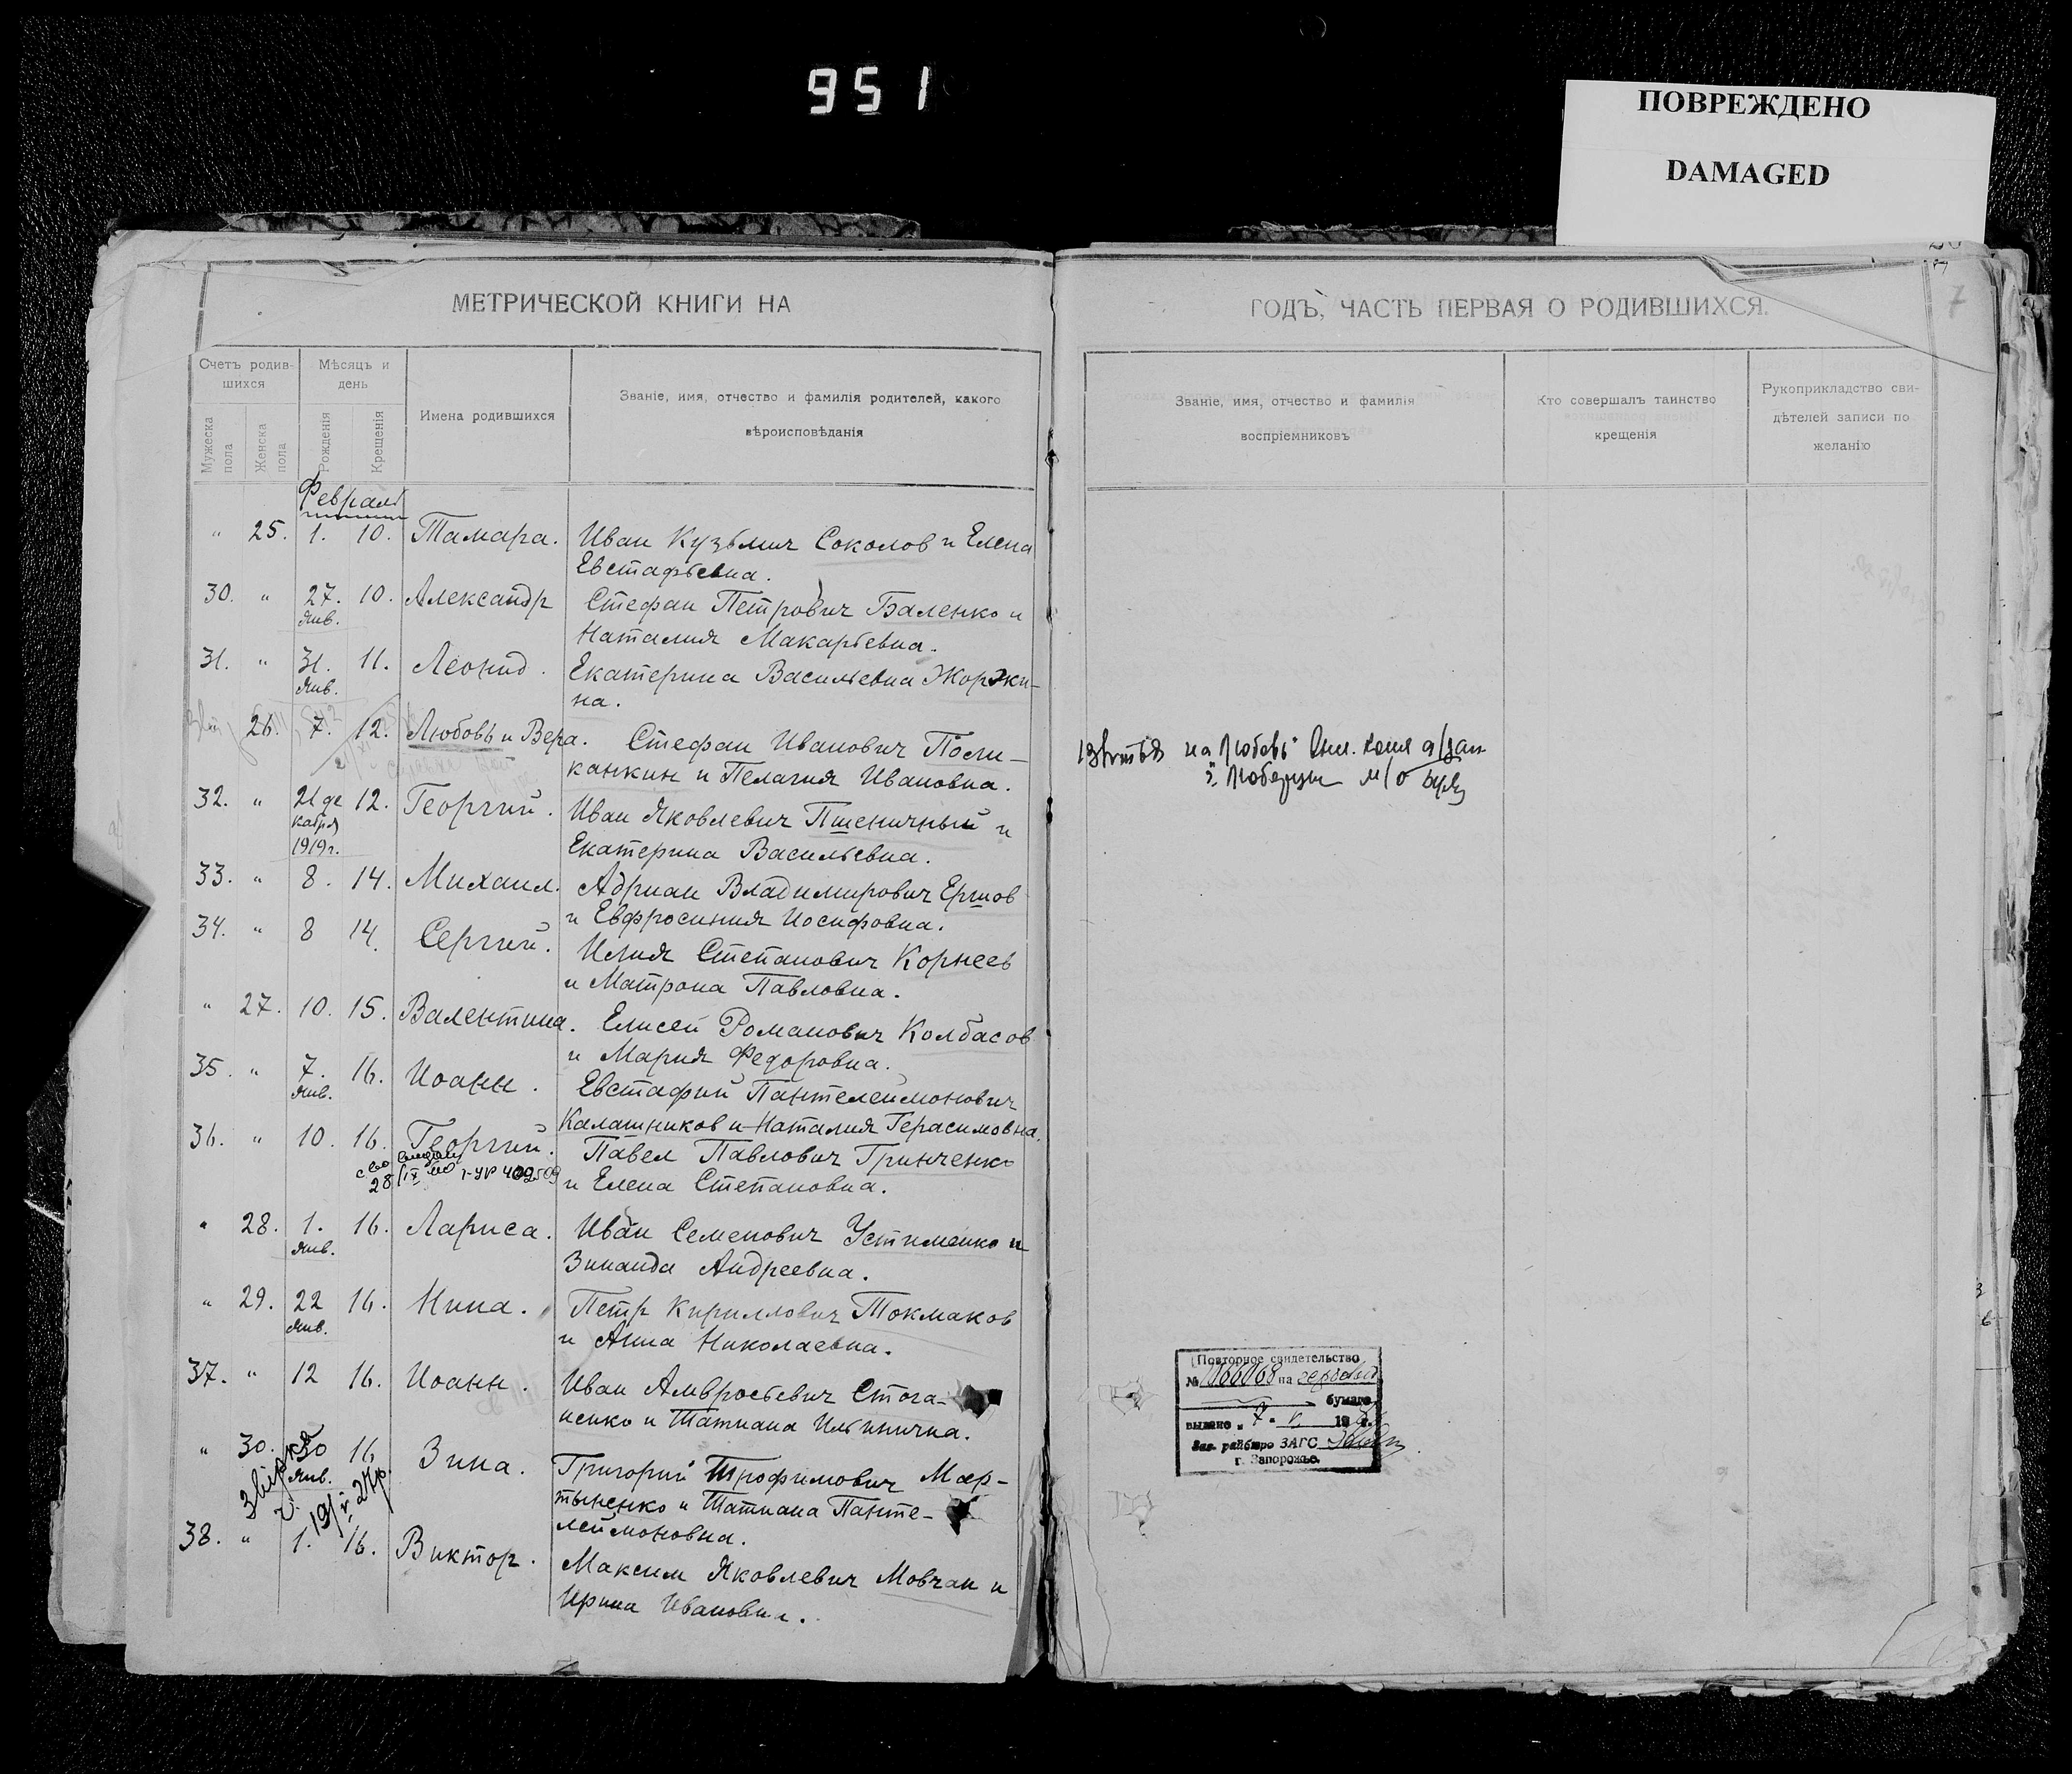 951
ПОВРЕЖДЕНО
DAMAGED
7
МЕТРИЧЕСКОЙ КНИГИ НА
ГОДЪ, ЧАСТЬ ПЕРВАЯ О РОДИВШИХСЯ.
Счетъ родив-
шихся
Мужеска пола
Женска пола
Мѣсяцъ и
день
Рожденія
Крещенія
Имена родившихся
Званіе, имя, отчество и фамилія родителей, какого
вѣроисповѣданія
Званіе, имя, отчество и фамилія
воспріемниковъ
Кто совершалъ таинство
крещенія
Рукоприкладство сви-
дѣтелей записи по
желанію
Февраль
" 25. 1. 10. Тамара. Иван Кузьмич Соколов и Елена
Евстафьевна.
30. " 27. 10. Александр Стефан Петрович Баленко и
Янв. Наталия Макарьевна.
31. " 31. 11. Леонид. Екатерина Васильевна Жоржи-
Янв. на.
26. 7. 12. Любовь и Вера. Стефан Иванович Поли-
канкин и Пелагия Ивановна.
32. " 21 де 12. Георгий. Иван Яковлевич Пшеничный и
кабря
1919 г. Екатерина Васильевна.
33. " 8. 14. Михаил. Адриан Владимирович Ершов
и Евфросиния Иосифовна.
34. " 8 14. Сергий. Илия Степанович Корнеев
и Матрона Павловна.
" 27. 10. 15. Валентина. Елисей Романович Колбасов
и Мария Федоровна.
35. " 7. 16. Иоанн. Евстафий Пантелеимонович
Янв. Калашников и Наталия Герасимовна.
36. " 10. 16. Георгий. Павел Павлович Гринченко
28/IX и Елена Степановна.
" 28. 1. 16. Лариса. Иван Семенович Устименко и
Янв. Зинаида Андреевна.
" 29. 22 16. Нина. Петр Кириллович Токмаков
Янв. и Анна Николаевна.
37. " 12 16. Иоанн. Иван Амвросьевич Стога-
ненко и Татиана Ильинична.
" 30. 30 16 Зина. Григорий Трофимович Мар-
Янв. тыненко и Татиана Панте-
леймоновна.
38. " 1. 16. Виктор. Максим Яковлевич Мовчан и
Ирина Ивановна.
на Любовь
Повторное свидетельство
№ 1066068 на
бумаге
выдано „ 7 " 19 г.
Зав. райбюро ЗАГС
г. Запорожье.